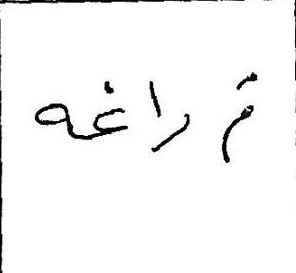 تم راغه